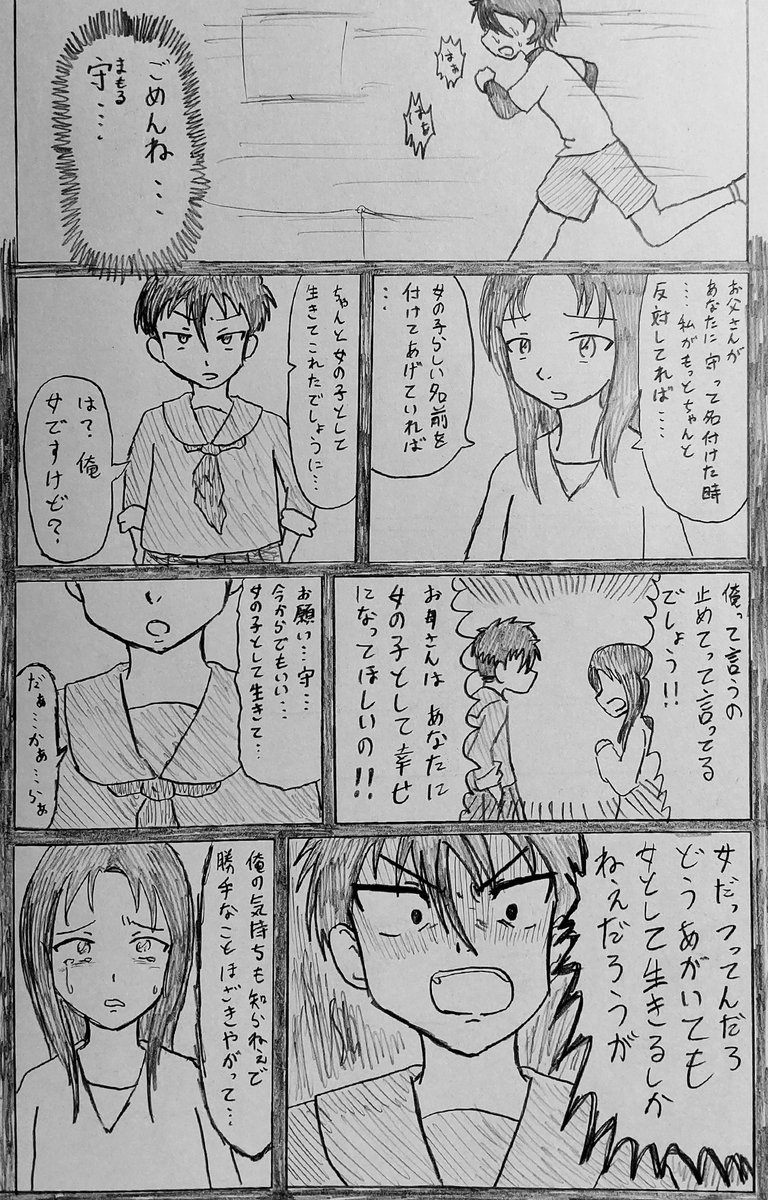 はぁ
はぁ
ごめんね…
守…
まもる
お父さんが
あなたに守って名付けた時
…私がもっとちゃんと
反対してれば…
女の子らしい名前を
付けてあげていれば
…
ちゃんと女の子として
生きてこれたでしょうに…
は?俺
女ですけど?
俺って言うの
止めてって言ってる
でしょう!!
お母さんはあなたに
女の子として幸せ
になってほしいの!!
お願い…守…
今からでもいい…
女の子として生きて…
だぁ…かぁ…らぁ
女だっつってんだろ
どうあがいても
女として生きるしか
ねえだろうが
俺の気持ちも知らねぇで
勝手なことほざきやがって…